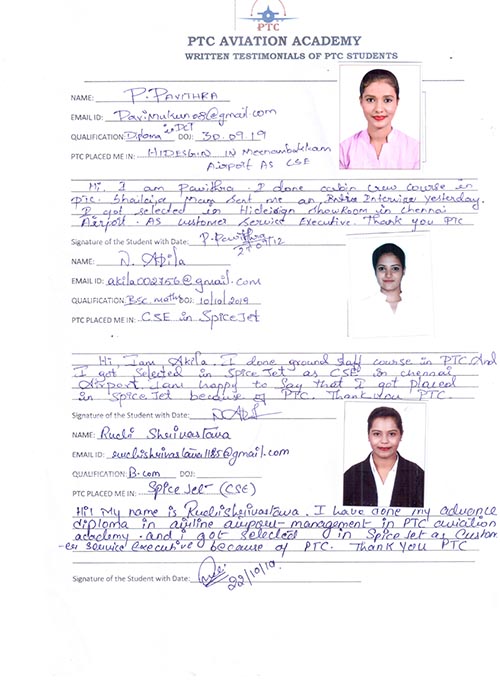 PTC
PTC AVIATION ACADEMY
WRITTEN TESTIMONIALS OF PTC STUDENTS
NAME: P. PAVITHRA
EMAIL ID: Pavimukun08@gmail.com
QUALIFICATION: Diploma in DCT DOJ: 30.09.19
PTC PLACED ME IN: HIDESGIN IN Meenambakkam
Airport AS CSE
Hi. I am Pavithra. I done cabin crew course in
PTC. Shailaja Mam sent me an Interview yesterday.
I got selected in Hidesign showRoom in chennai
Airport. AS customer Service Executive. Thank you PTC
Signature of the Student with Date: P. Pavithra
NAME: N. Akila
EMAIL ID: akila002756@gmail.com
QUALIFICATION: Bsc. maths DOJ: 10/10/2019
PTC PLACED ME IN: CSE in SpiceJet
Hi Iam Akila. I done ground staff course in PTC. And
I got Selected in Spice Jet as CSE in chennai
Airport. I am happy to Say that I got placed
in SpiceJet because of PTC. Thank you PTC.
Signature of the Student with Date: N.Akila
NAME: Ruchi Shrivastava
EMAIL ID: ruchishrivastava1185@gmail.com
QUALIFICATION: B.com DOJ:
PTC PLACED ME IN: Spice Jet (CSE)
Hi! My name is Ruchishrivastava. I have done my advance
diploma in airline airport management in PTC aviation
academy. and i got selected in Spice Jet as Custom
-er service executive because of PTC. Thank You PTC
Signature of the Student with Date: 22/10/19